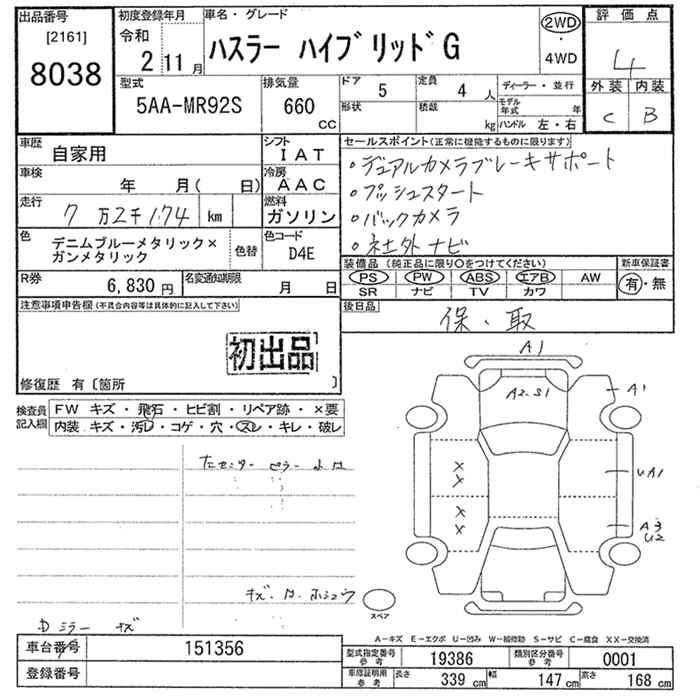 出品番号 初度登録年月 車名・グレード 2WD 評価点
[2161] 令和 ハスラー ハイブリッドG ・
8038 2 11月 4WD 4
型式 排気量 ドア 5 定員 4人 ディーラー・並行 外装 内装
5AA-MR92S 660 CC 形状 積載 kg モデル年式 年 C B
ハンドル 左・右
車歴 自家用 シフト IAT セールスポイント(正常に機能するものに限ります)
車検 年 月( 日) 冷房 AAC ・デュアルカメラブレーキサポート
走行 7万2千174 km 燃料 ガソリン ・プッシュスタート
・バックカメラ
色 デニムブルーメタリック×ガンメタリック 色替 色コード D4E ・社外ナビ
R券 6,830円 名変通知期限 月 日
装備品(純正品に限り○をつけてください) 新車保証書
PS PW ABS エアB AW 有・無
SR ナビ TV カワ
注意事項申告欄(不具合内容等は具体的に記入して下さい) 後日品
保・取
初出品
修復歴 有〔箇所 〕
検査員記入欄 FW キズ・飛石・ヒビ割・リペア跡・×要
内装 キズ・汚レ・コゲ・穴・スレ・キレ・破レ
A1
A2・S1 A1
UA1
A3
U2
××
××
スペア
ミラー キズ
A-キズ E-エクボ U-凹み W-補修跡 S-サビ C-腐食 XX-交換済
車台番号 151356 型式指定番号 参考 19386 類別区分番号 参考 0001
登録番号 車庫証明用 参考 長さ 339 cm 幅 147 cm 高さ 168 cm